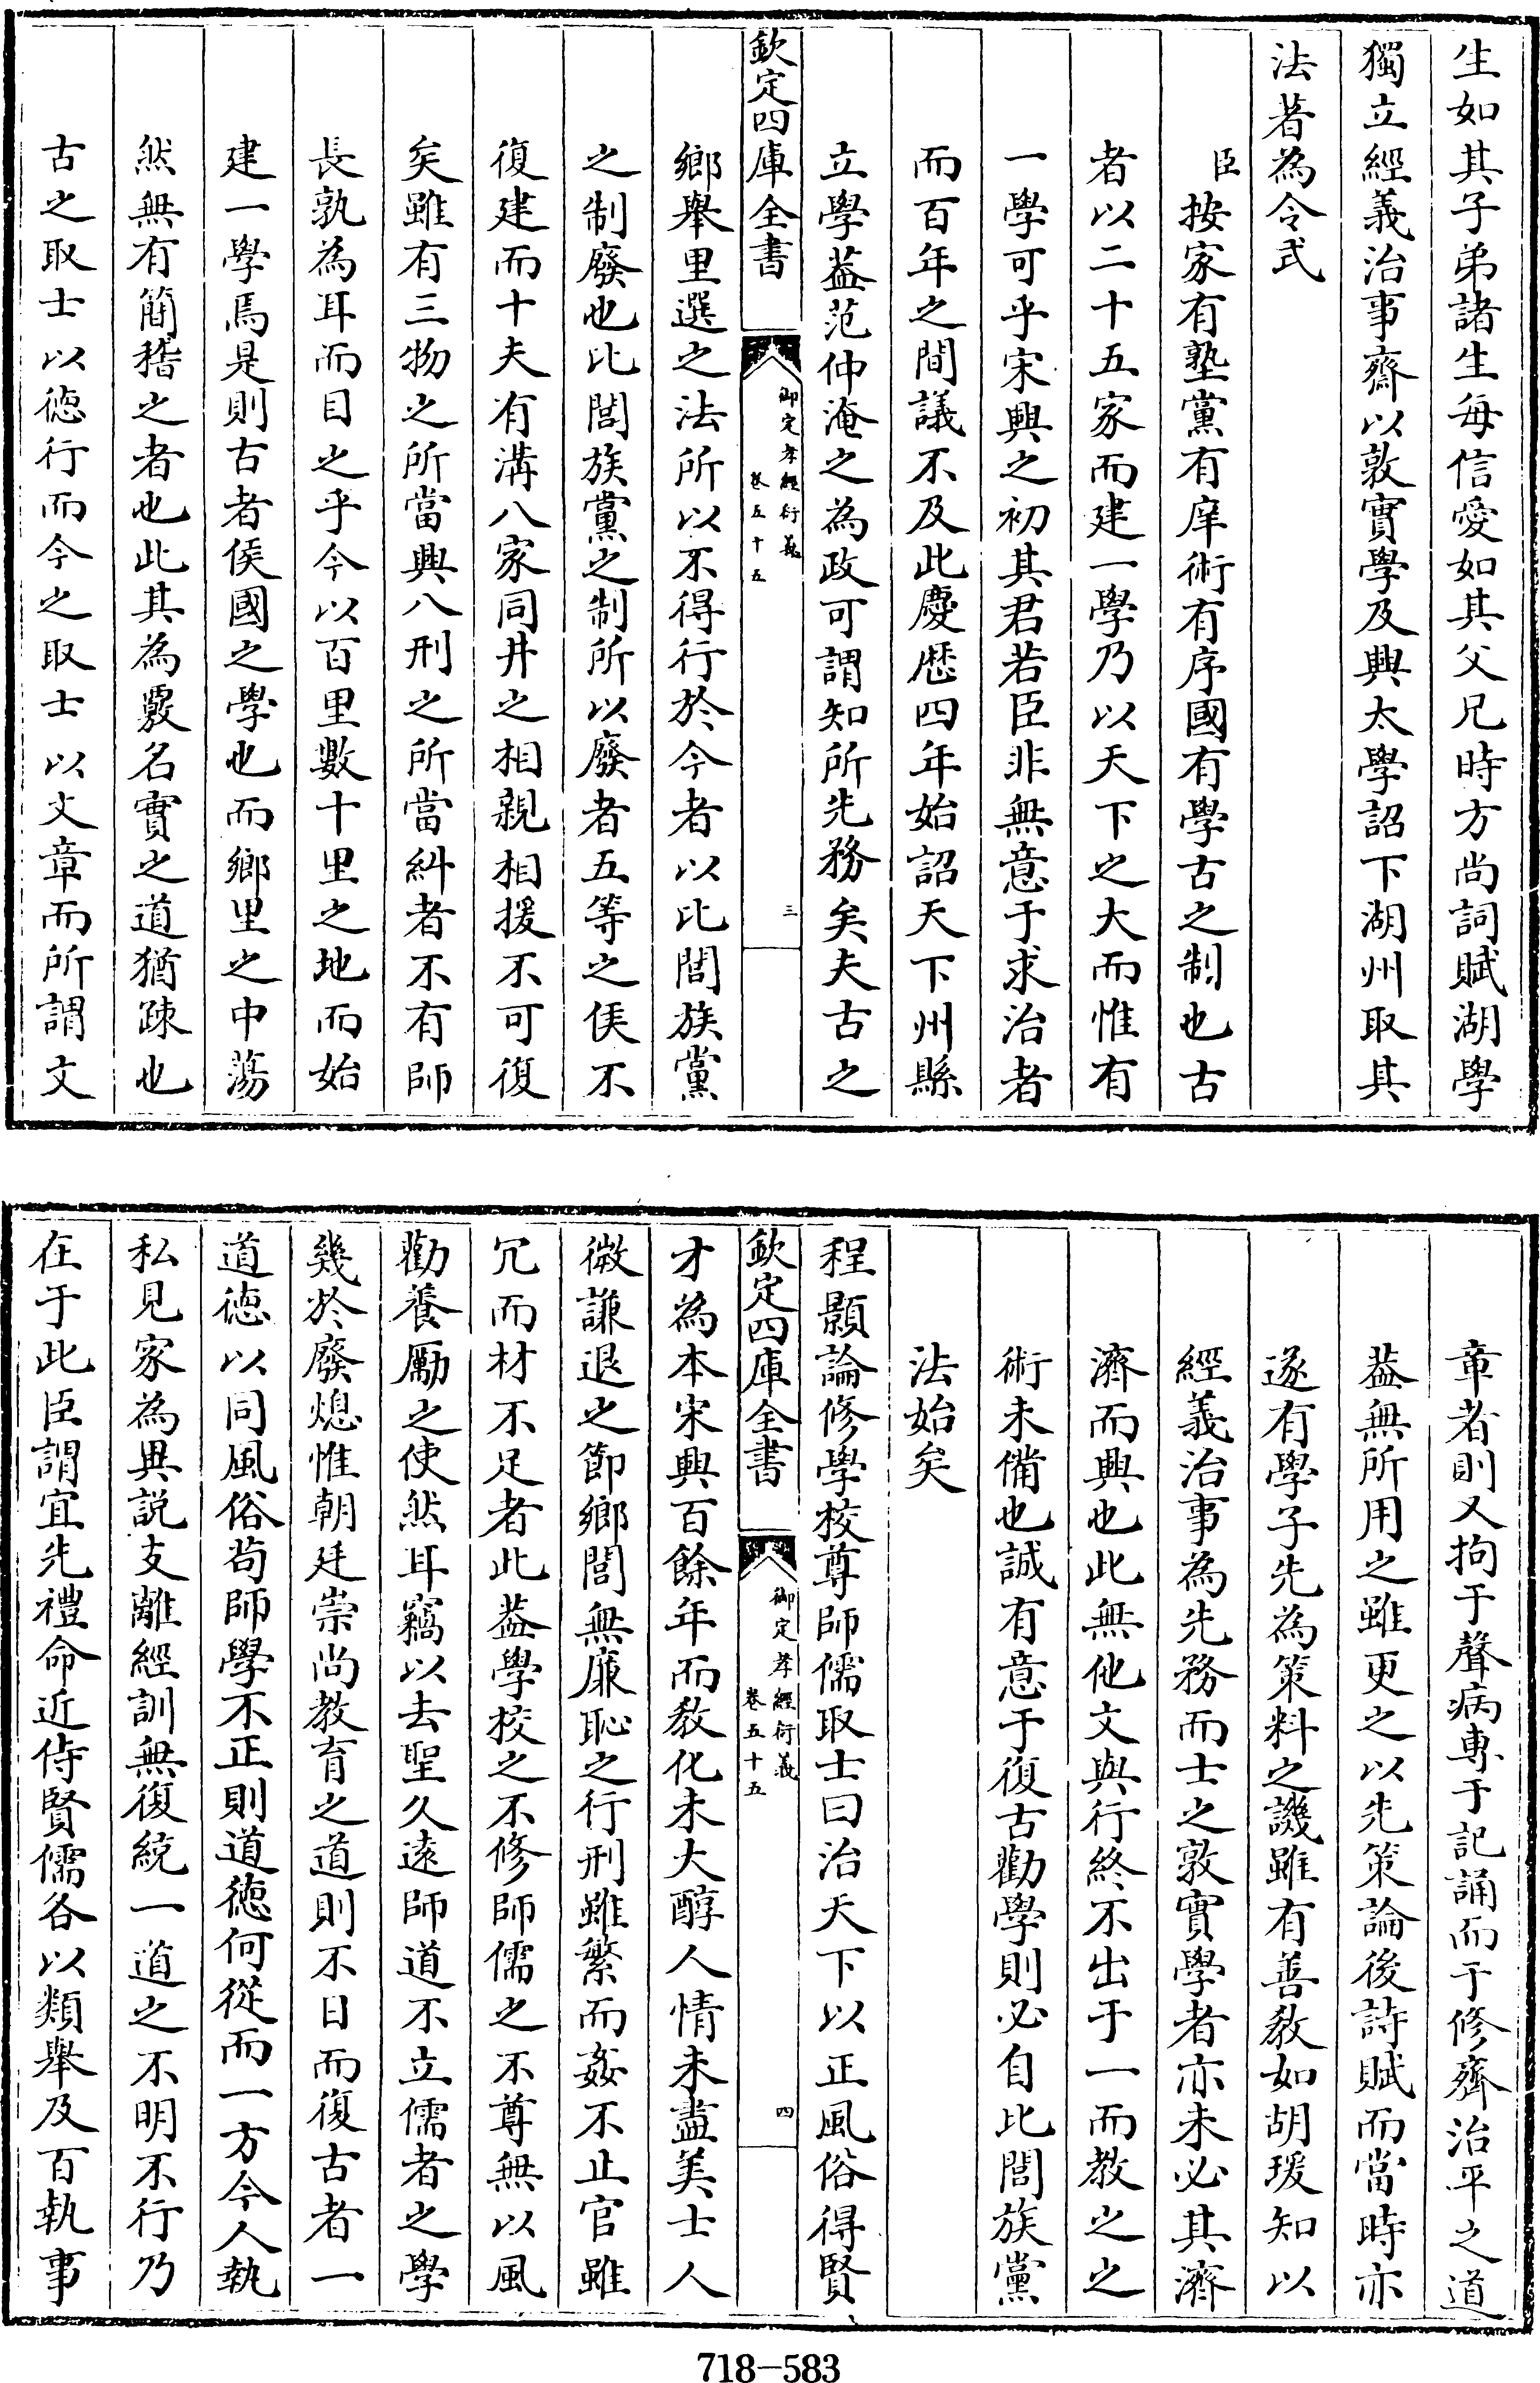 生如其子弟諸生每信愛如其父兄時方尚詞賦湖學
獨立經義治事齋以敦實學及興太學詔下湖州取其
法著為令式
臣按家有塾黨有庠術有序國有學古之制也古
者以二十五家而建一學乃以天下之大而惟有
一學可乎宋興之初其君若臣非無意于求治者
而百年之間議不及此慶歴四年始詔天下州縣
立學葢范仲淹之為政可謂知所先務矣夫古之
欽定四庫全書
御定孝經衍義
卷五十五
三
鄉舉里選之法所以不得行於今者以比閭族黨
之制廢也比閭族黨之制所以廢者五等之侯不
復建而十夫有溝八家同井之相親相援不可復
矣雖有三物之所當興八刑之所當糾者不有師
長孰為耳而目之乎今以百里數十里之地而始
建一學焉是則古者侯國之學也而鄉里之中蕩
然無有簡稽之者也此其為覈名實之道猶疎也
古之取士以徳行而今之取士以文章而所謂文
章者則又拘于聲病專于記誦而于修齊治平之道
葢無所用之雖更之以先策論後詩賦而當時亦
遂有學子先為策料之譏雖有善教如胡瑗知以
經義治事為先務而士之敦實學者亦未必其濟
濟而興也此無他文與行終不出于一而教之之
術未備也誠有意于復古勸學則必自比閭族黨
法始矣
程顥論修學校尊師儒取士曰治天下以正風俗得賢
欽定四庫全書
御定孝經衍義
卷五十五
四
才為本宋興百餘年而教化未大醇人情未盡美士人
微謙退之節鄉閭無廉恥之行刑雖繁而姦不止官雖
冗而材不足者此葢學校之不修師儒之不尊無以風
勸養勵之使然耳竊以去聖久遠師道不立儒者之學
幾於廢熄惟朝廷崇尚教育之道則不日而復古者一
道徳以同風俗茍師學不正則道徳何從而一方今人執
私見家為異説支離經訓無復統一道之不明不行乃
在于此臣謂宜先禮命近侍賢儒各以類舉及百執事
718-583